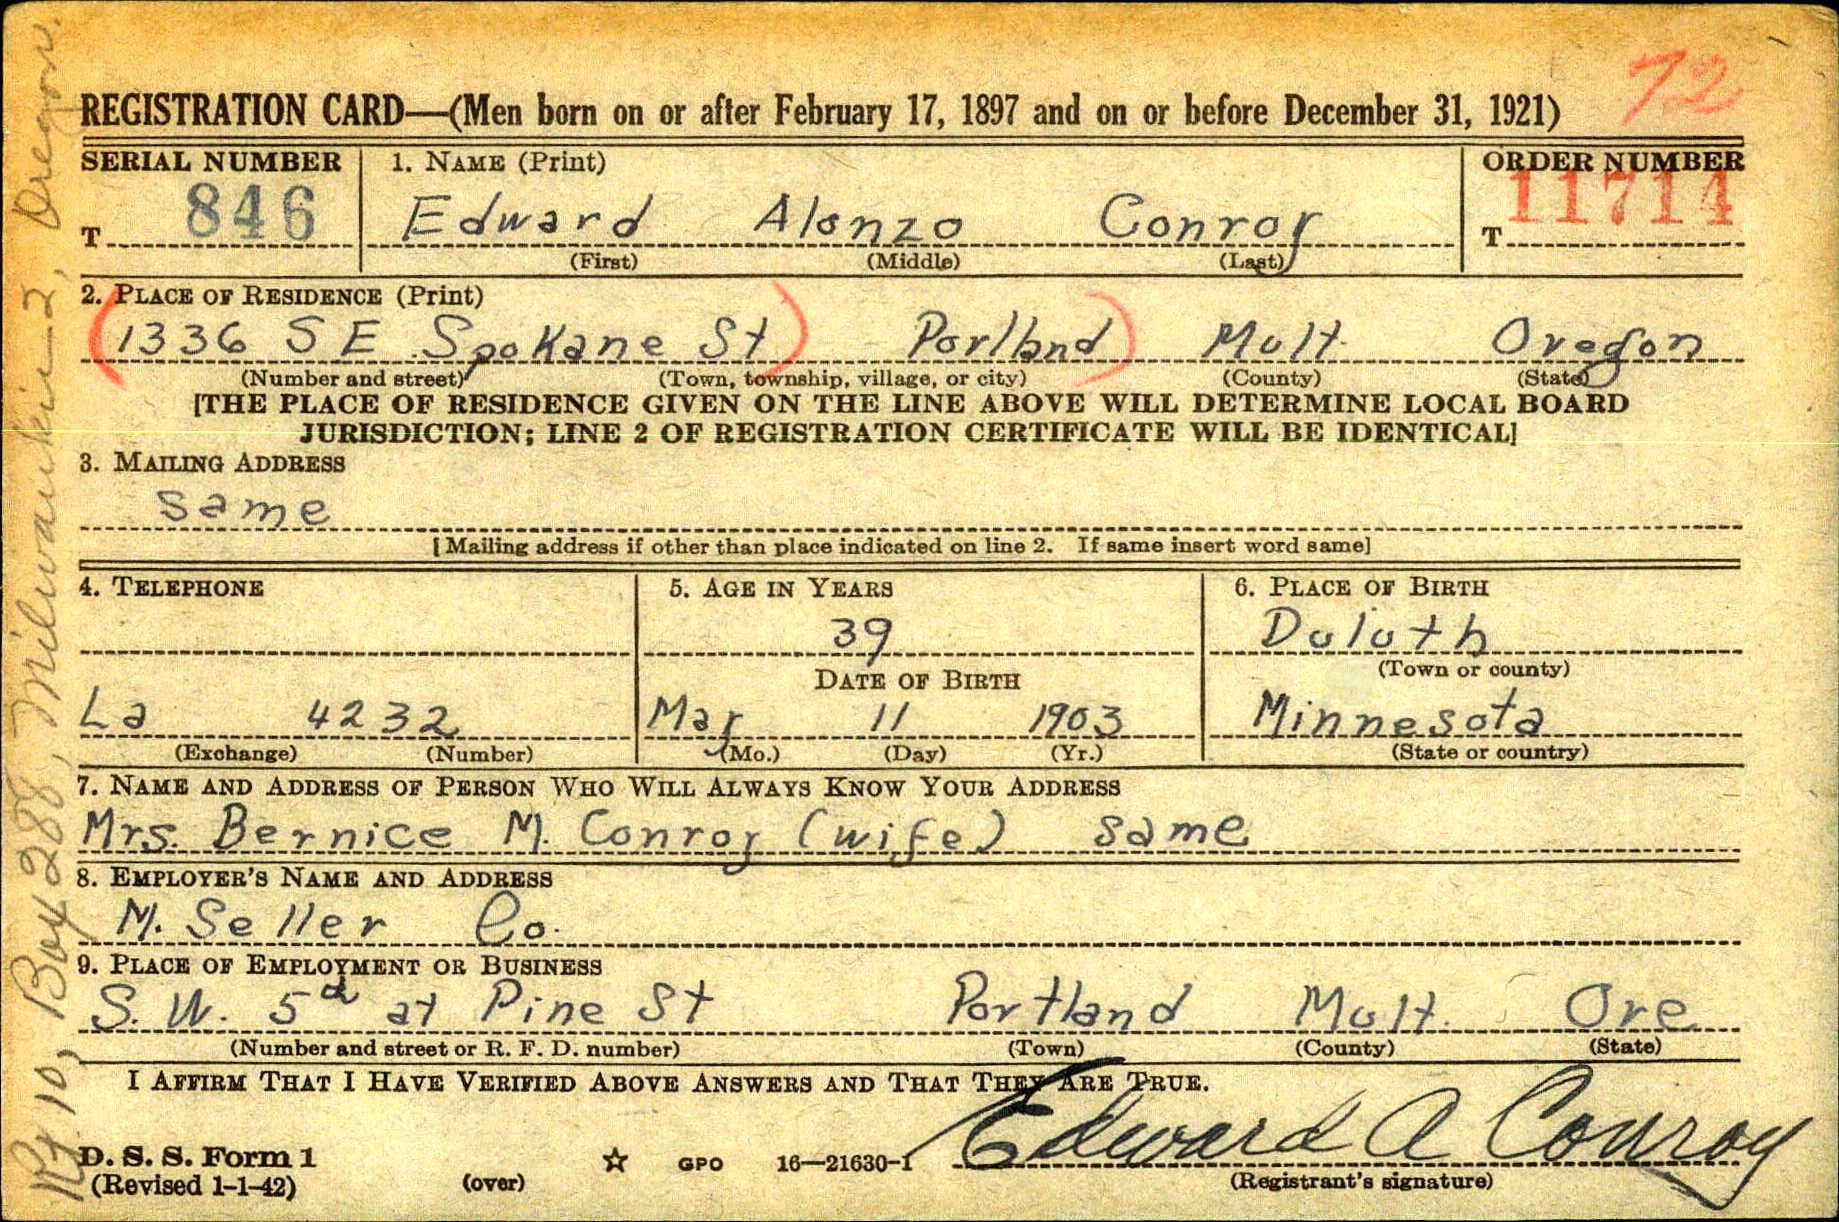 72
REGISTRATION CARD—(Men born on or after February 17, 1897 and on or before December 31, 1921)
SERIAL NUMBER 1. NAME (Print) ORDER NUMBER
T 846 Edward Alonzo Conroy T 11714
(First) (Middle) (Last)
2. PLACE OF RESIDENCE (Print)
(1336 S E Spokane St) Portland) Mult. Oregon
(Number and street) (Town, township, village, or city) (County) (State)
[THE PLACE OF RESIDENCE GIVEN ON THE LINE ABOVE WILL DETERMINE LOCAL BOARD
JURISDICTION; LINE 2 OF REGISTRATION CERTIFICATE WILL BE IDENTICAL]
3. MAILING ADDRESS
same
[Mailing address if other than place indicated on line 2. If same insert word same]
4. TELEPHONE 5. AGE IN YEARS 6. PLACE OF BIRTH
39 Duluth
DATE OF BIRTH (Town or county)
La 4232 Mar 11 1903 Minnesota
(Exchange) (Number) (Mo.) (Day) (Yr.) (State or country)
7. NAME AND ADDRESS OF PERSON WHO WILL ALWAYS KNOW YOUR ADDRESS
Mrs. Bernice M. Conroy (wife) same
8. EMPLOYER'S NAME AND ADDRESS
M. Seller Co.
9. PLACE OF EMPLOYMENT OR BUSINESS
S. W. 5th at Pine St Portland Mult. Ore
(Number and street or R. F. D. number) (Town) (County) (State)
I AFFIRM THAT I HAVE VERIFIED ABOVE ANSWERS AND THAT THEY ARE TRUE.
Edward A Conroy
D. S. S. Form 1
(Revised 1-1-42) (over) ☆ GPO 16—21630-1 (Registrant's signature)
Rt 10, Box 288, Milwaukie-2, Oregon.